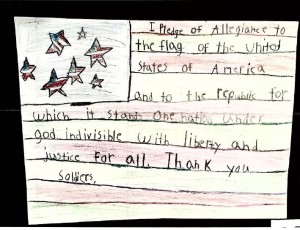 I Pledge of Allegiance to
the flag of the United
States of America
and to the republic for
which it stands one nation under
god indivisible with liberty and
justice for all Thank you
Soldiers.